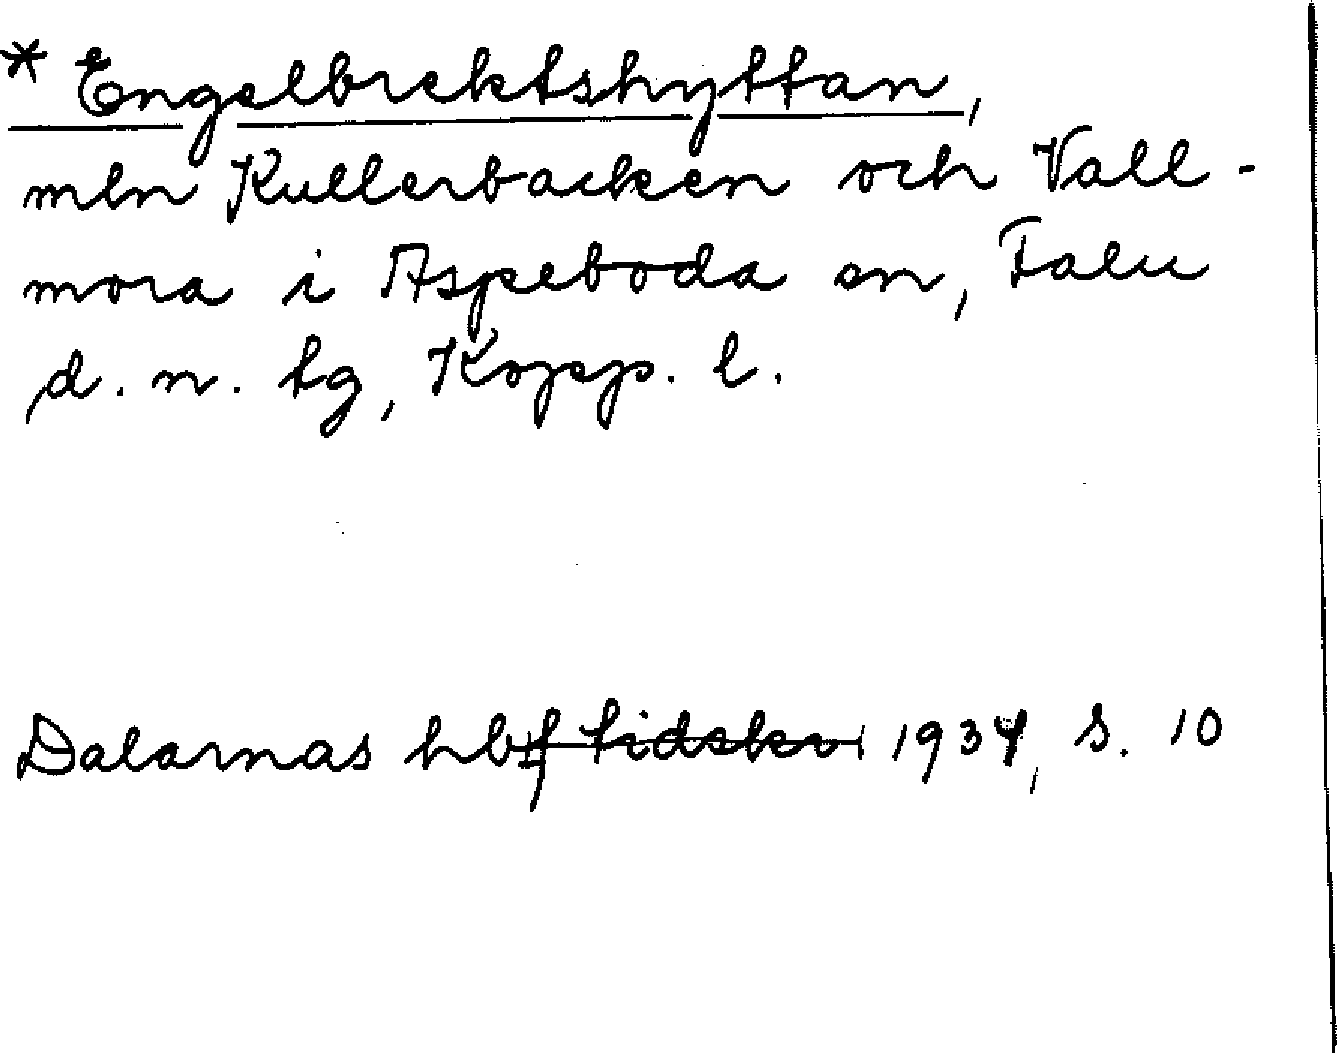 * Engelbrektshyttan,
mln Kullerbacken och Vall-
mora i Aspeboda sn, Falu
d. n. tg, Kopp. l.
Dalarnas hbf tidskr 1937, s. 10